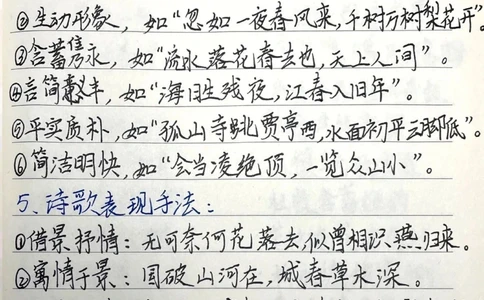 ②生动形象，如“忽如一夜春风来，千树万树梨花开”。
③含蓄隽永，如“流水落花春去也，天上人间”。
④言简意丰，如“海日生残夜，江春入旧年”。
⑤平实质朴，如“孤山寺北贾亭西，水面初平云脚低”。
⑥简洁明快，如“会当凌绝顶，一览众山小”。
5、诗歌表现手法：
①借景抒情：无可奈何花落去，似曾相识燕归来。
②寓情于景：国破山河在，城春草木深。